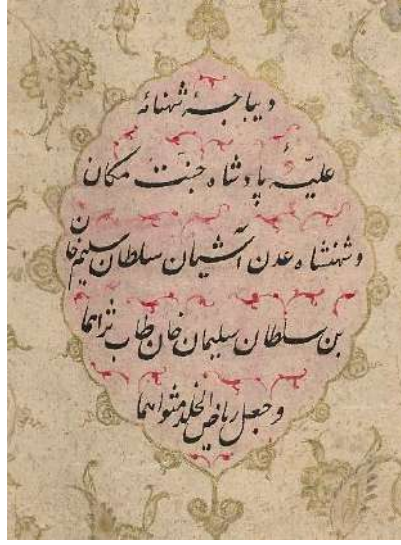 دیباجهٔ شهنامهٔ
علیّهٔ پادشاه جنّت مکان
و شهنشاه عدن آشیان سلطان سلیم خان
بن سلطان سلیمان خان طاب ثراهما
و جعل ریاض الخلد مثواهما